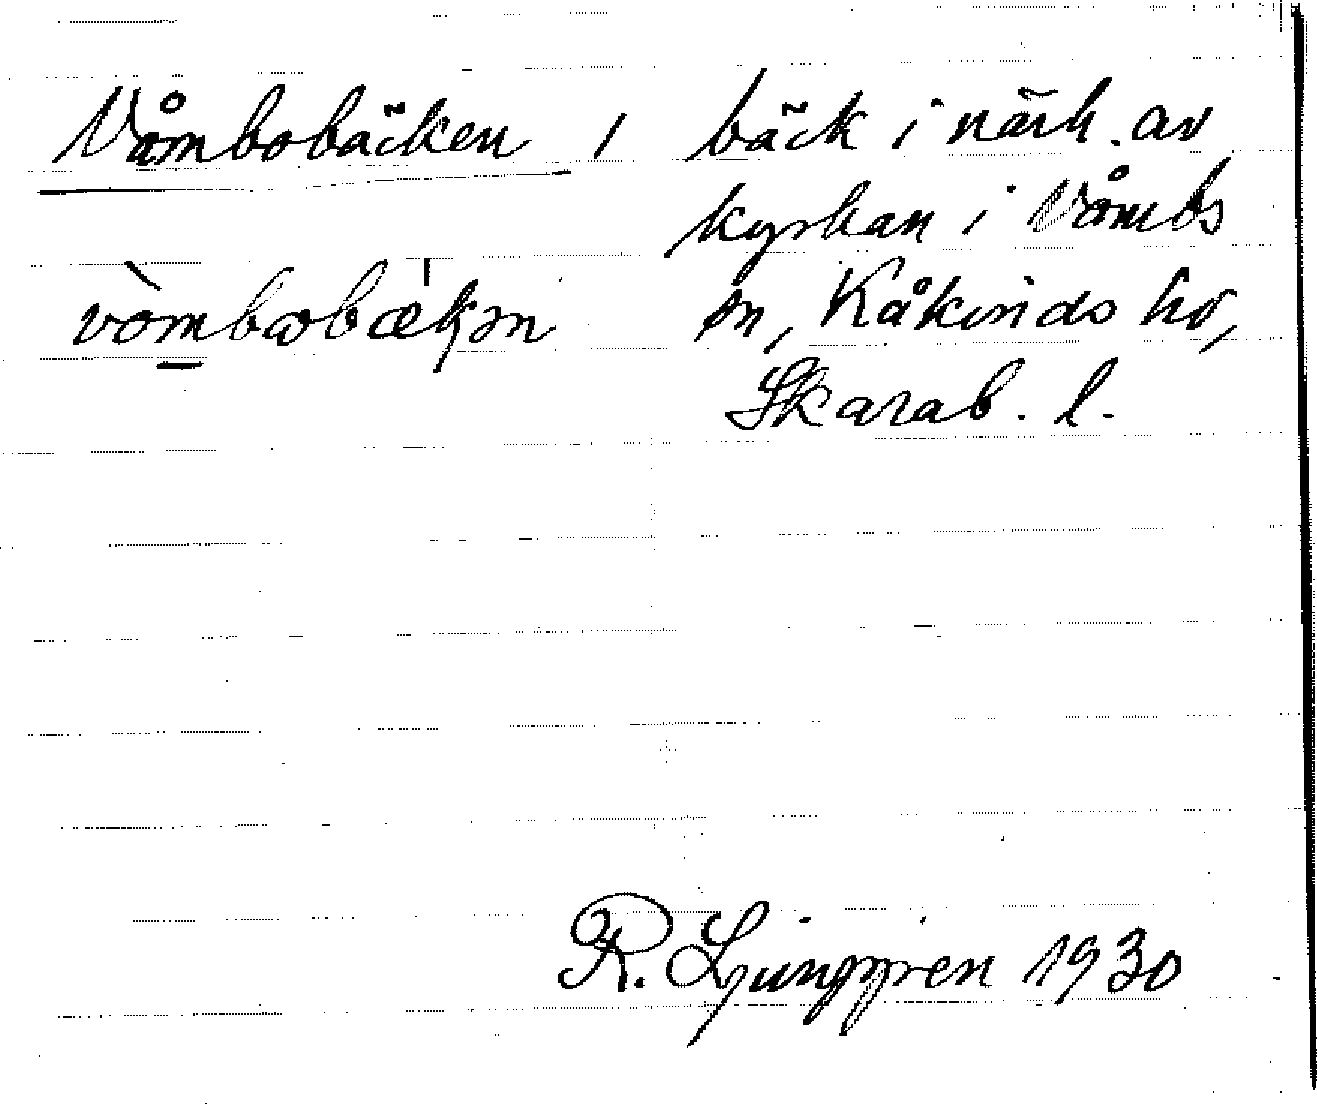 Våmbobäcken / bäck i närh. av
kyrkan i Våmbs
sn, Kåkinds hd,
Skarab. l.
vòmbωbækən
R. Ljunggren 1930